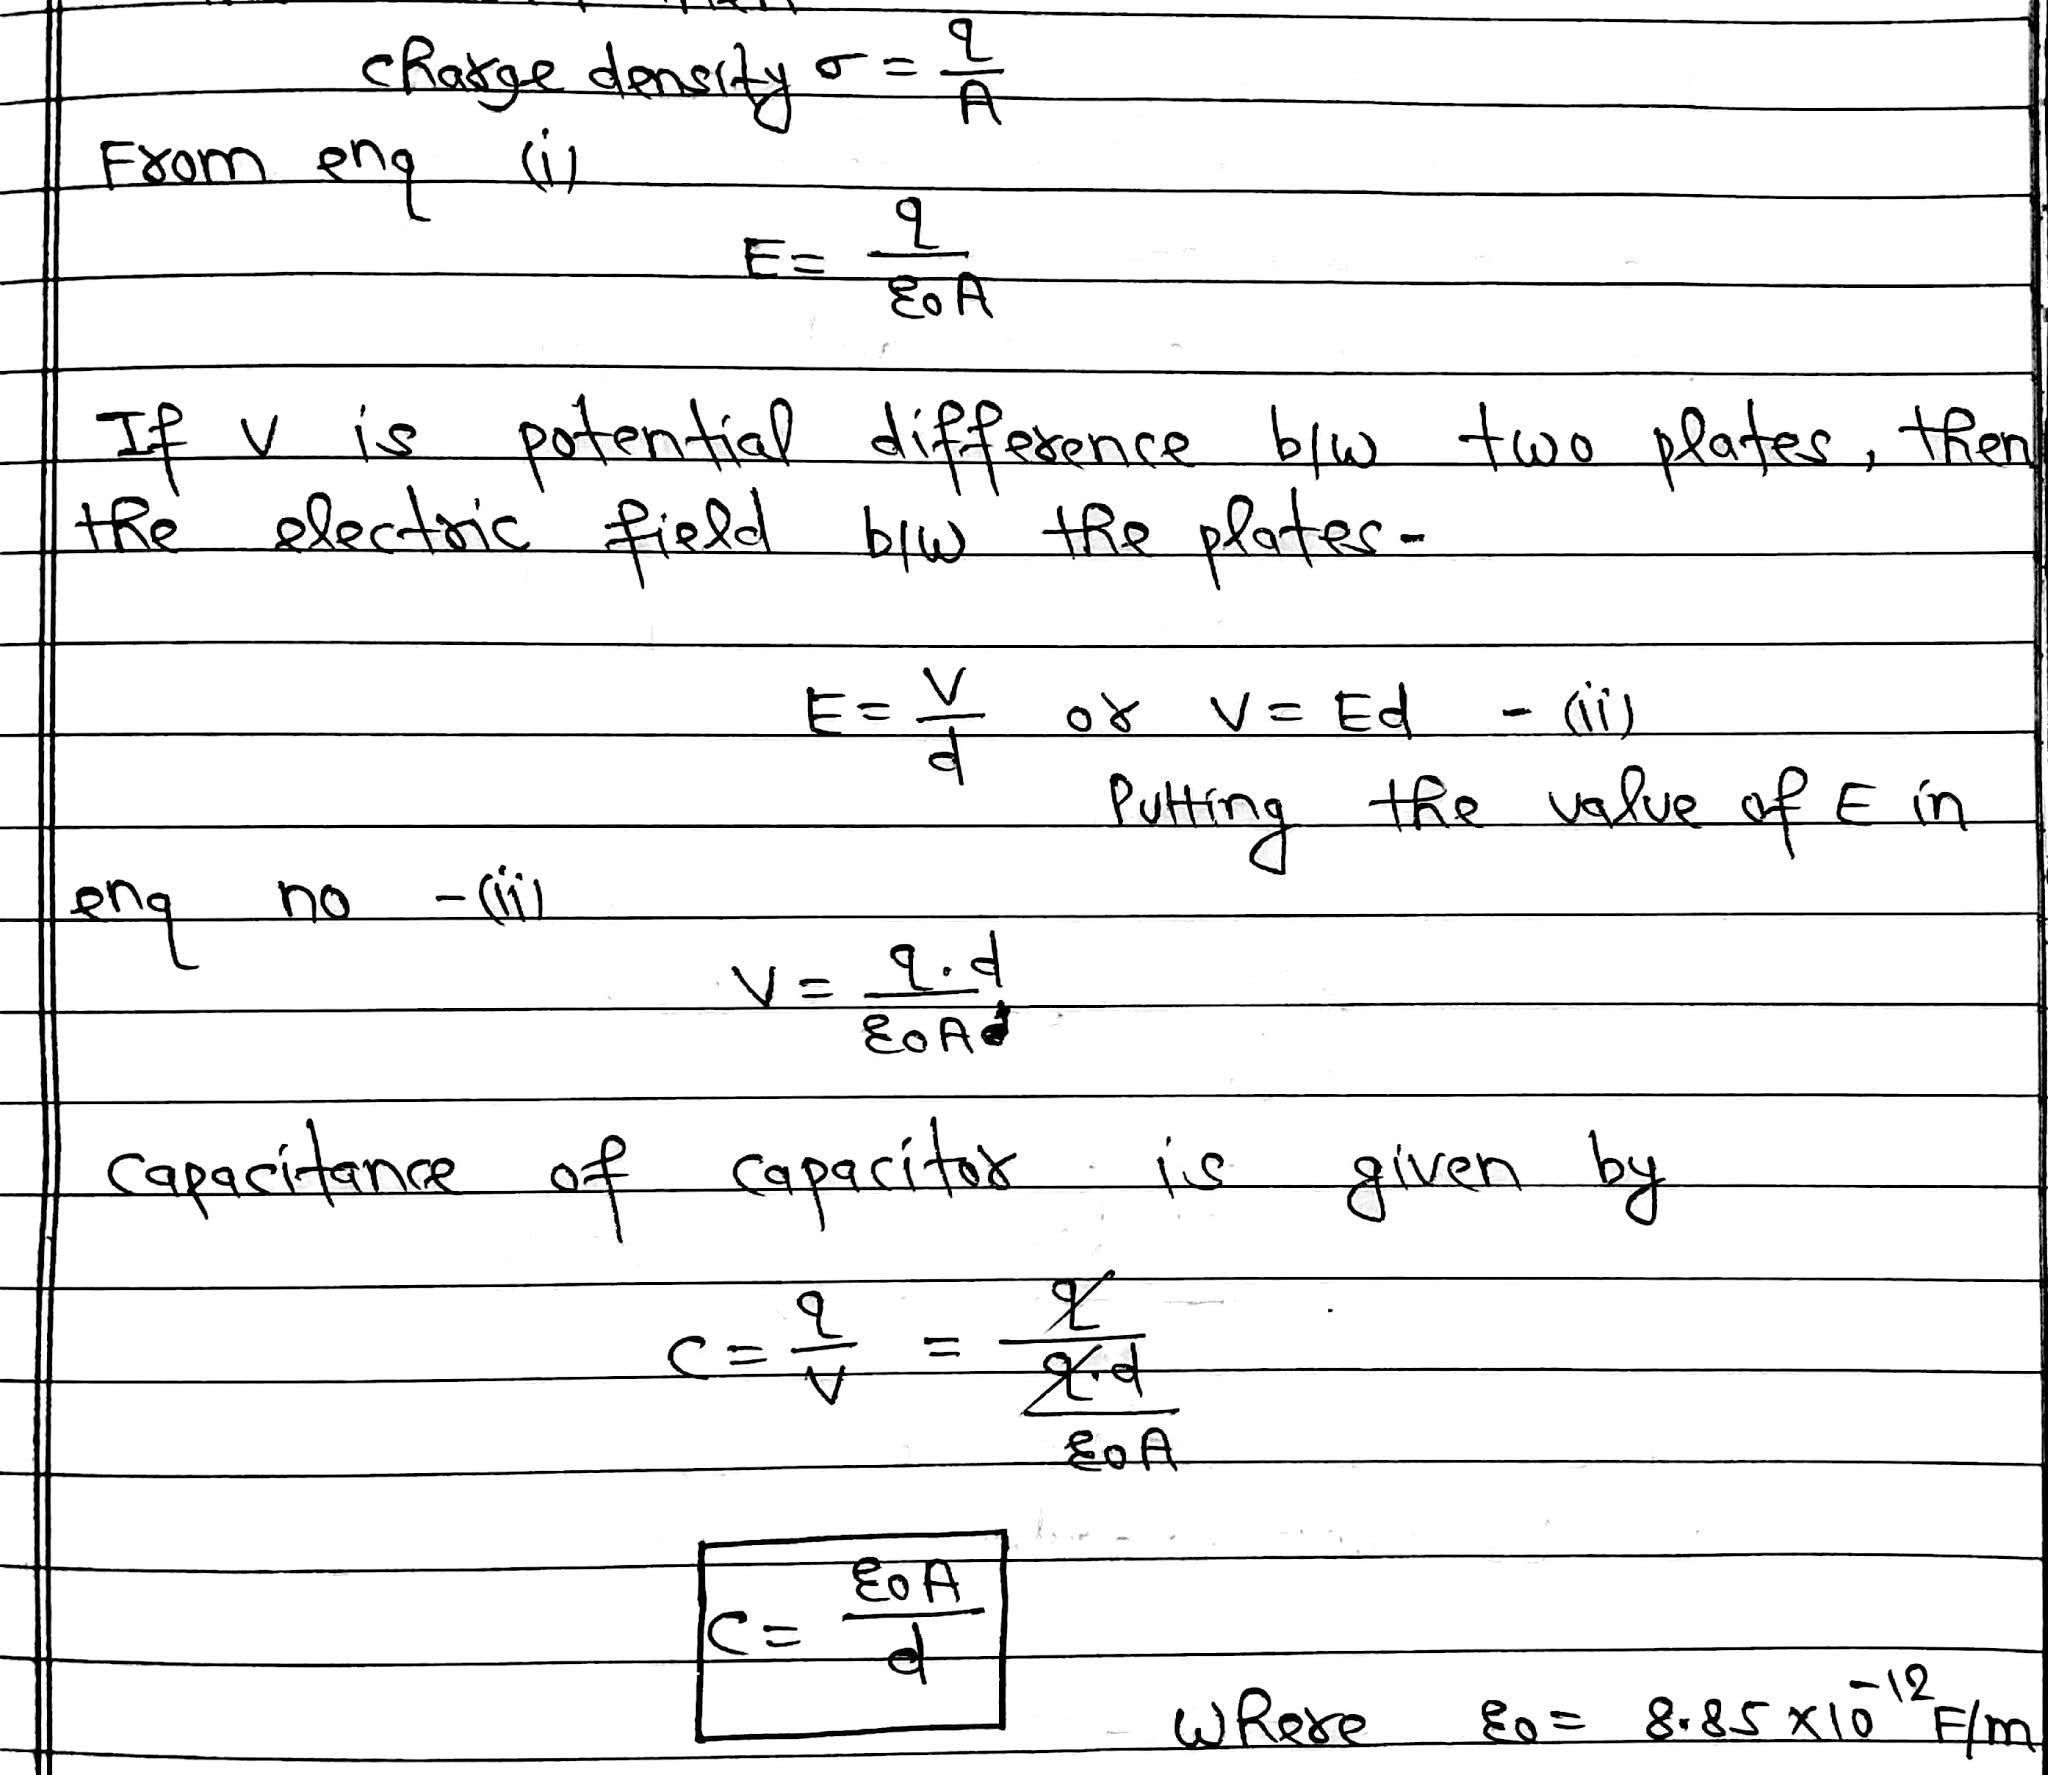 charge density σ = q/A
From enq (i)
E = q/ε0A
If V is potential difference b/w two plates, then
the electric field b/w the plates-
E = V/d or V = Ed - (ii)
Putting the value of E in
enq no - (ii)
V = q.d/ε0A
capacitance of capacitor is given by
C = q/V = q/(q.d/ε0A)
C = ε0A/d
Where ε0 = 8.85 x 10^-12 F/m